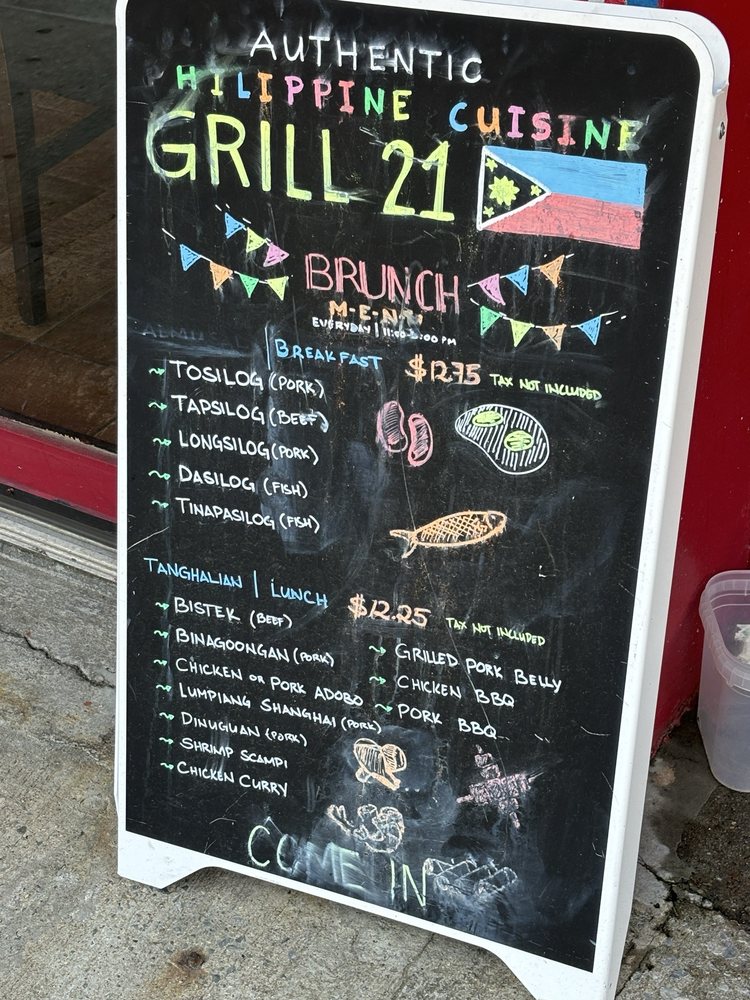 AUTHENTIC
HILIPPINE CUISINE
GRILL 21
BRUNCH
MENU
EVERYDAY | 11:00-3:00 PM
ALMUSAL | BREAKFAST $12.75 TAX NOT INCLUDED
TOSILOG (PORK)
TAPSILOG (BEEF)
LONGSILOG (PORK)
DASILOG (FISH)
TINAPASILOG (FISH)
TANGHALIAN | LUNCH $12.25 TAX NOT INCLUDED
BISTEK (BEEF)
BINAGOONGAN (PORK)
CHICKEN OR PORK ADOBO
LUMPIANG SHANGHAI (PORK)
DINUGUAN (PORK)
SHRIMP SCAMPI
CHICKEN CURRY
GRILLED PORK BELLY
CHICKEN BBQ
PORK BBQ
COME IN